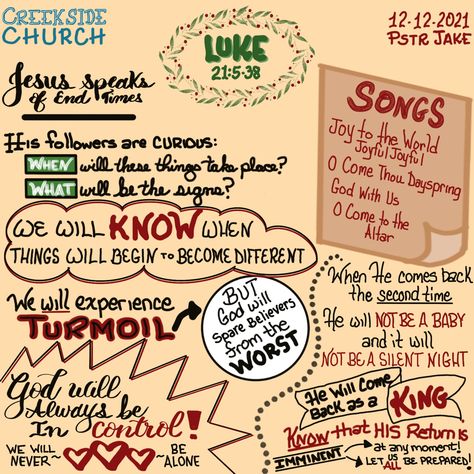 CREEKSIDE
CHURCH
LUKE
21:5-38
12-12-2021
PSTR JAKE
Jesus speaks
of End Times
His followers are CURIOUS:
WHEN will these things take place?
WHAT will be the signs?
WE WILL KNOW WHEN
THINGS WILL BEGIN TO BECOME DIFFERENT
We will experience
TURMOIL
BUT
God will
Spare Believers
from the
WORST
God will
Always be
In control!
WE WILL
NEVER
BE
ALONE
SONGS
Joy to the World
Joyful Joyful
O Come Thou Dayspring
God With Us
O Come to the
Altar
When He comes back
the second time
He will NOT BE A BABY
and it will
NOT BE A SILENT NIGHT
He Will Come
Back as a
KING
KNOW that HIS Return is
IMMINENT
at any moment!
LET US ALL BE PREPARED!